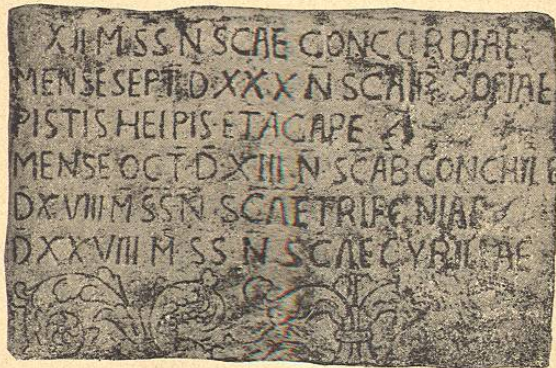 XII M SS N SCAE CONCORDIAE
MENSE SEPT D XXX N SOFIAE
PISTIS HELPIS ETACAPE
MENSE OCT D XIII N
DXVIII M SS N SCAE TRIFENIAE
DXXVIII M SS N SCAE CYRILLAE